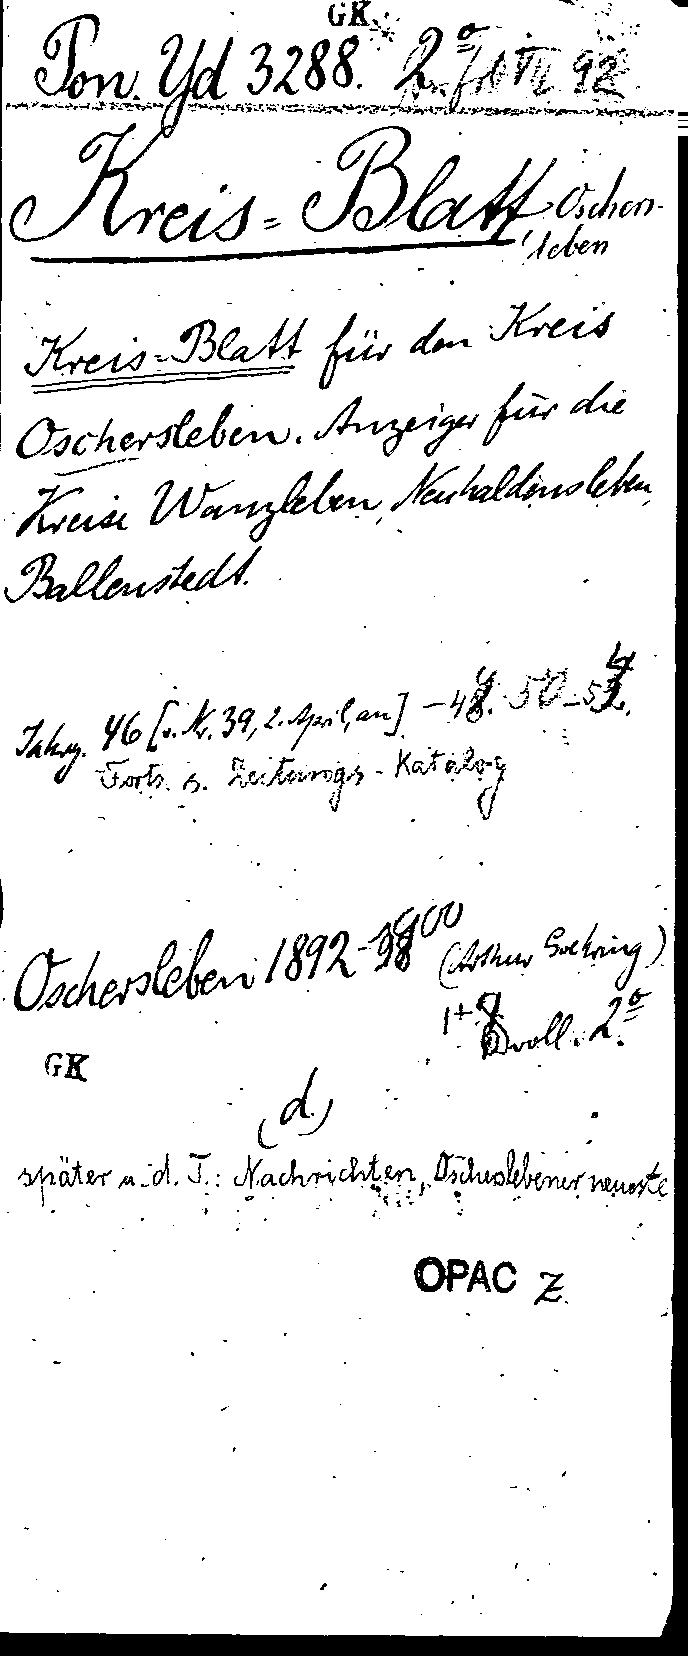 GK
Pon. Yd 3288. 2º
Kreis=Blatt Oschers-
leben
Kreis=Blatt für den Kreis
Oschersleben. Anzeiger für die
Kreise Wanzleben, Neuhaldensleben,
Ballenstedt.
Jahrg. 46 [v. Nr. 39, 2. April, an] -48. 50-54.
Forts. s. Zeitungs-Katalog
Oschersleben 1892-1900 (Arthur Goehring)
voll. 2º
GK
(d.)
später u. d. T.: Nachrichten, Oscherslebener neueste
OPAC Z